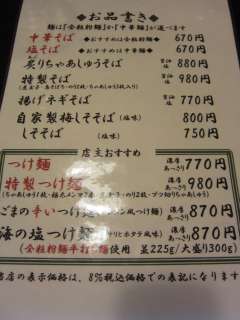 ◆お品書き◆
麺は『全粒粉麺』か『中華麺』が選べます
中華そば ◆おすすめは全粒粉麺◆ 670円
塩そば ◆おすすめは中華麺◆ 670円
炙りちゃあしゅうそば 醤油 塩 880円
特製そば 醤油 塩 980円
揚げネギそば 醤油 塩 770円
自家製梅しそそば (塩味) 800円
しそそば (塩味) 750円
店主おすすめ
つけ麺 濃厚 あっさり 770円
特製つけ麺 濃厚 あっさり 980円
ごまの辛いつけ麺 濃厚 あっさり 870円
海の塩つけ麺 濃厚 あっさり 870円
『全粒粉麺平打ち麺』使用 並225g/大盛り300g
当店の表示価格は、8%税込価格での表記になります